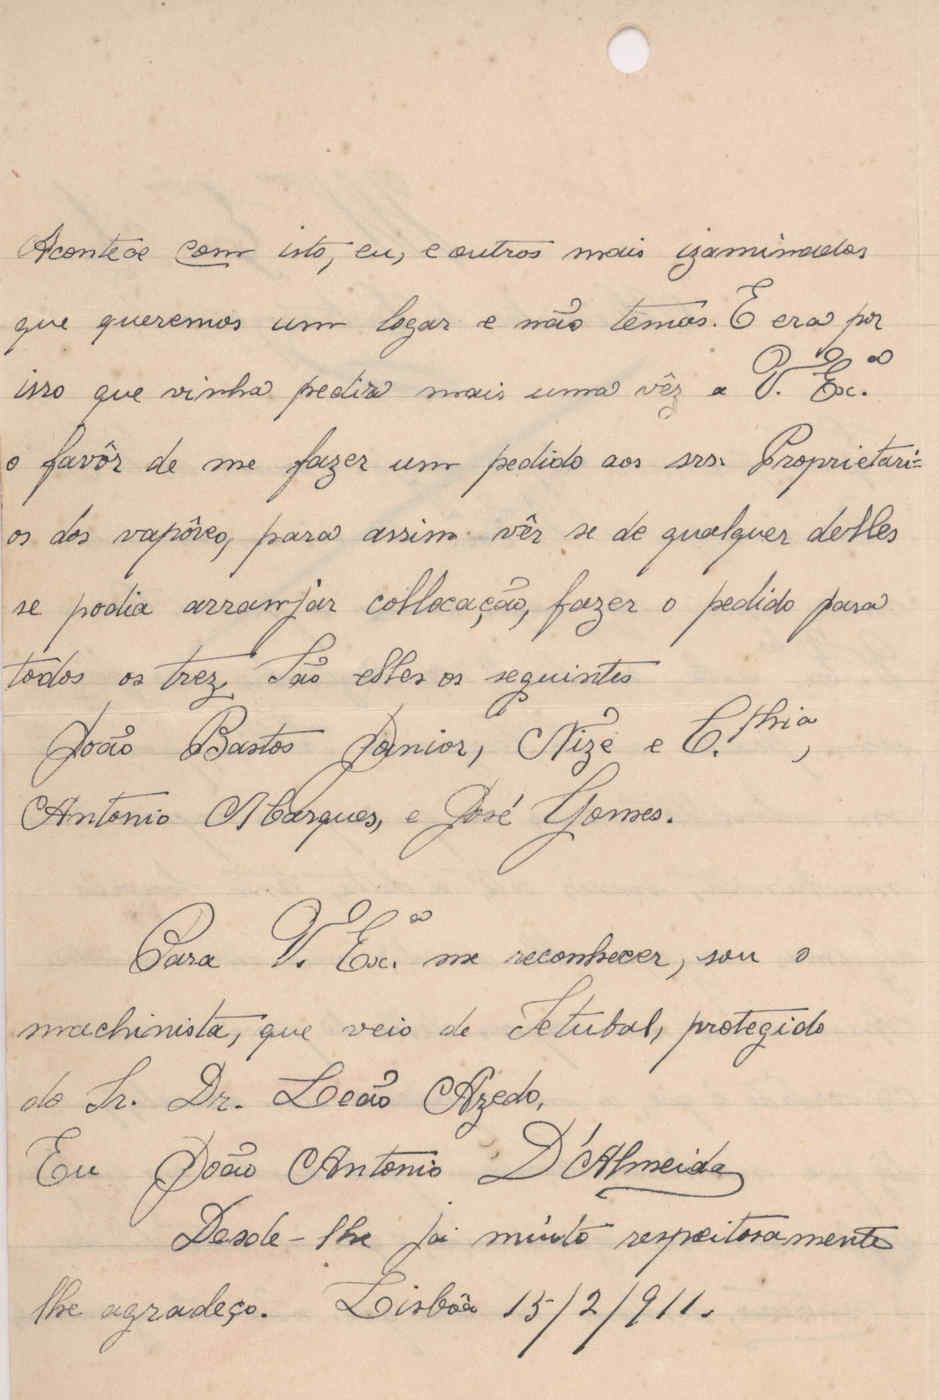 Acontece com isto, eu, e outros mais izaminados
que queremos um logar e não temos. E era por
isso que vinha pedir mais uma vêz a V. Exc.ª
o favôr de me fazer um pedido aos srs. Proprietari=
os dos vapôres, para assim vêr se de qualquer delles
se podia arranjar collocação, fazer o pedido para
todos os trez, São elles os seguintes
João Bastos Junior, Nize e C.thia,
Antonio Marques, e José Gomes.
Para V. Exc.ª me reconhecer, sou o
machinista, que veio de Setubal, protegido
do Sr. Dr. Leão Azedo,
Eu João Antonio D'Almeida
Desde-lhe já muito respeitosamente
lhe agradeço. Lisbôa 15/2/911.